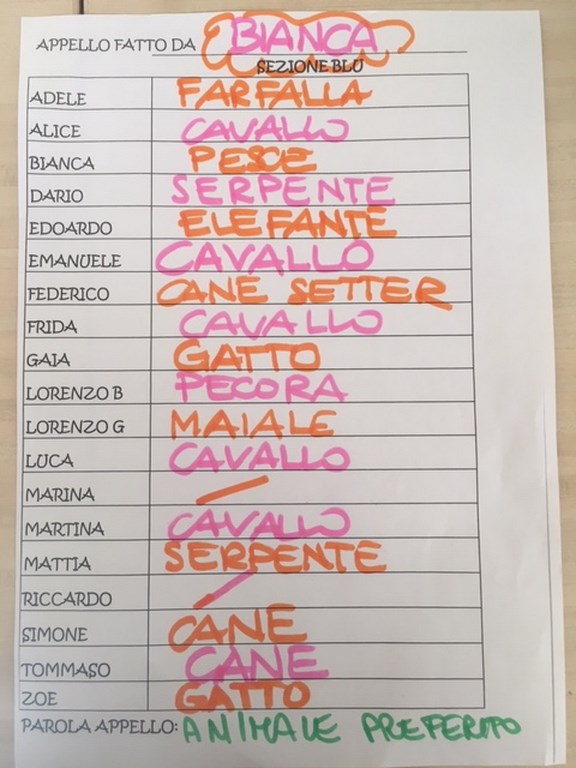 APPELLO FATTO DA BIANCA
SEZIONE BLU
ADELE FARFALLA
ALICE CAVALLO
BIANCA PESCE
DARIO SERPENTE
EDOARDO ELEFANTE
EMANUELE CAVALLO
FEDERICO CANE SETTER
FRIDA CAVALLO
GAIA GATTO
LORENZO B PECORA
LORENZO G MAIALE
LUCA CAVALLO
MARINA
MARTINA CAVALLO
MATTIA SERPENTE
RICCARDO
SIMONE CANE
TOMMASO CANE
ZOE GATTO
PAROLA APPELLO: ANIMALE PREFERITO